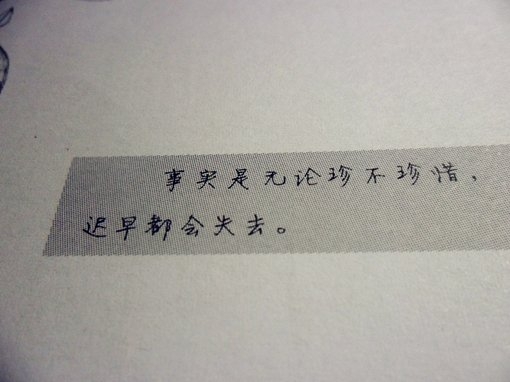 事实是无论珍不珍惜，
迟早都会失去。